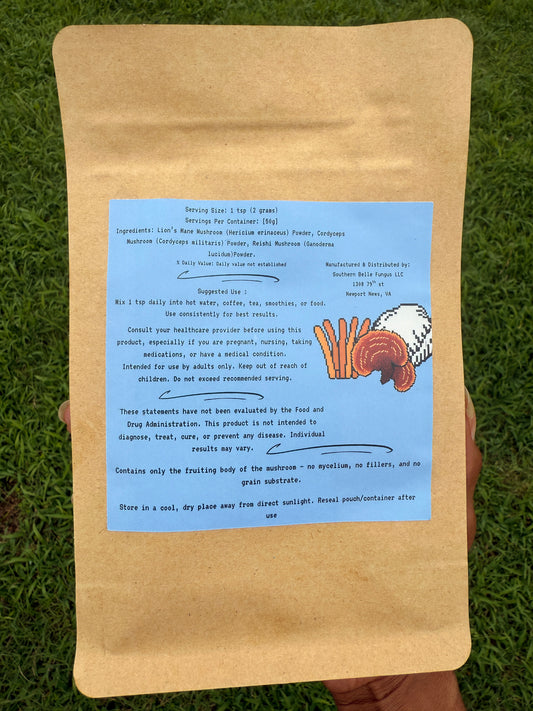 Serving Size: 1 tsp (2 grams)
Servings Per Container: [60g]
Ingredients: Lion's Mane Mushroom (Hericium erinaceus) Powder, Cordyceps
Mushroom (Cordyceps militaris) Powder, Reishi Mushroom (Ganoderma
lucidum)Powder.
% Daily Value: Daily value not established
Manufactured & Distributed by:
Southern Belle Fungus LLC
1308 79th st
Newport News, VA
Suggested Use :
Mix 1 tsp daily into hot water, coffee, tea, smoothies, or food.
Use consistently for best results.
Consult your healthcare provider before using this
product, especially if you are pregnant, nursing, taking
medications, or have a medical condition.
Intended for use by adults only. Keep out of reach of
children. Do not exceed recommended serving.
These statements have not been evaluated by the Food and
Drug Administration. This product is not intended to
diagnose, treat, cure, or prevent any disease. Individual
results may vary.
Contains only the fruiting body of the mushroom – no mycelium, no fillers, and no
grain substrate.
Store in a cool, dry place away from direct sunlight. Reseal pouch/container after
use